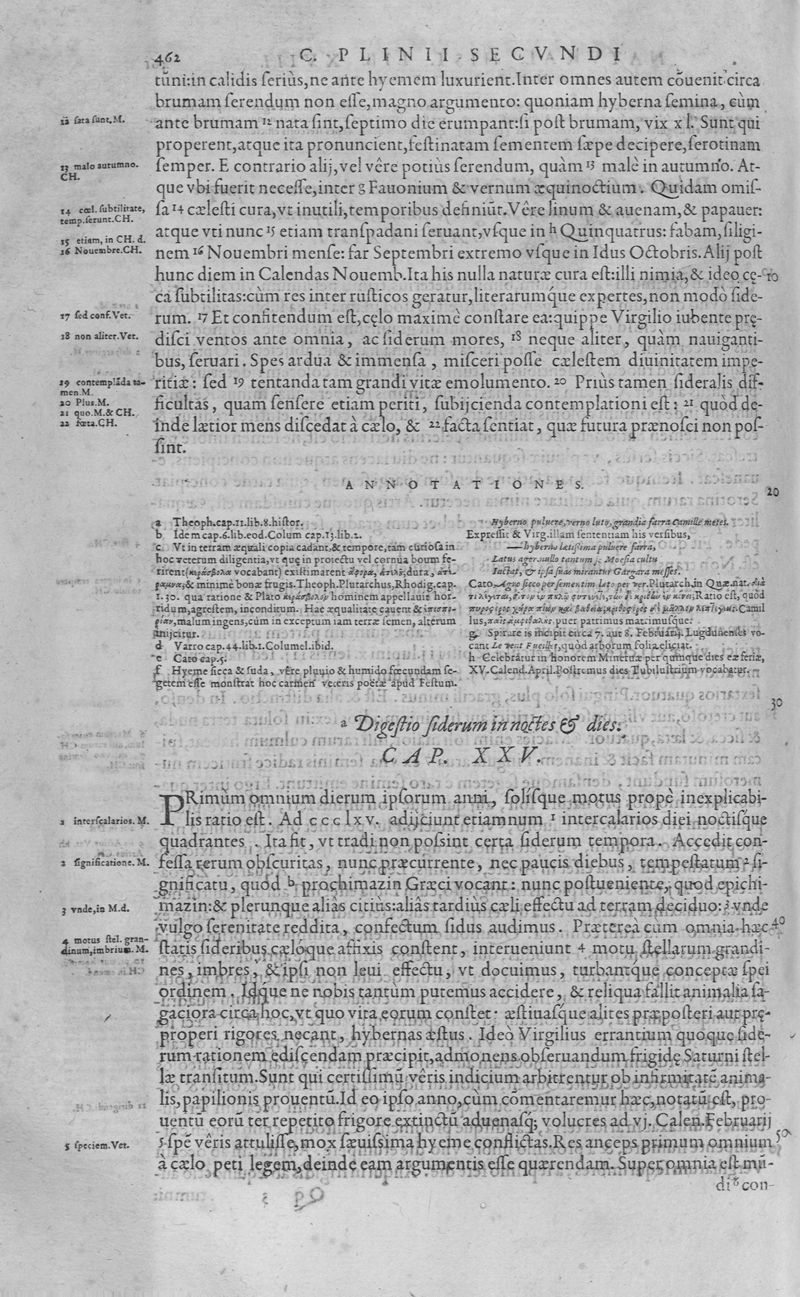 462 C. PLINII SECVNDI
tũni:in calidis seriùs,ne ante hyemem luxurient.Inter omnes autem cõuenit circa
brumam serendum non esse,magno argumento: quoniam hyberna semina, cùm
ante brumam 12 nata sint,septimo die erumpant:si post brumam, vix xl. Sunt qui
properent,atque ita pronuncient,festinatam sementem sæpe decipere,serotinam
semper. E contrario alij,vel vêre potiùs serendum, quàm 13 malè in autumno. At-
que vbi fuerit necesse,inter g Fauonium & vernum æquinoctium. Quidam omis-
sa 14 cælesti cura,vt inutili,temporibus definiũt.Vêre linum & auenam,& papauer:
atque vti nunc 15 etiam transpadani seruant,vsque in h Quinquatrus: fabam,siligi-
nem 16 Nouembri mense: far Septembri extremo vsque in Idus Octobris.Alij post
hunc diem in Calendas Nouemb.Ita his nulla naturæ cura est:illi nimia,& ideo cę- 10
ca subtilitas:cùm res inter rusticos geratur,literarumque expertes,non modò side-
rum. 17 Et confitendum est,cęlo maximè constare ea:quippe Virgilio iubente prę-
disci ventos ante omnia, ac siderum mores, 18 neque aliter, quàm nauiganti-
bus,seruari. Spes ardua & immensa, misceri posse cælestem diuinitatem impe-
ritiæ: sed 19 tentanda tam grandi vitæ emolumento. 20 Priùs tamen sideralis dif-
ficultas, quam sensere etiam periti, subijcienda contemplationi est: 21 quò de-
inde lætior mens discedat à cælo, & 22 facta sentiat, quæ futura prænosci non pos-
sint.
12 sata sunt.M.
13 malo autumno.
CH.
14 cœl. subtilitate,
temp.serunt.CH.
15 etiam, in CH. d.
16 Nouembre.CH.
17 sed conf.Vet.
18 non aliter.Vet.
19 contemplãda ta-
men.M.
20 Plus.M.
21 quo.M.& CH.
22 fœta.CH.
ANNOTATIONES. 20
a Theoph.cap.11.lib.8.histor.
b Idem cap.6.lib.eod.Colum cap.13.lib.2.
c Vt in terram æquali copia cadant,& tempore,tam curiosa in
hoc veterum diligentia,vt quę in proiectu vel cornua boum fe-
rirent vocabant) existimarent dura,
& minimè bonæ frugis.Theoph.Plutarchus,Rhodig.cap.
1.30. qua ratione & Plato hominem appellauit hor-
ridum,agrestem, inconditum. Hac æqualitate cauent &
malum ingens,cùm in exceptum iam terræ semen, alterum
inijcitur.
d Varro cap.44.lib.1.Columel.ibid.
e Cato cap.5.
f Hyeme sicca & suda, vêre pluuio & humido fœcundam se-
getem esse monstrat hoc carmen veteris poëtæ apud Festum.
Hyberno puluere,verno luto,grandia farra Camille metes.
Expressit & Virg.illam sententiam his versibus,
—hyberno lætissima puluere farra,
Lætus ager.nullo tantum se Moesia cultu
Iactat, & ipsa suas mirantur Gargara messes.
Cato,Ager sicco per sementim luto per ver.Plutarch.in Quæ.nat.
Ratio est, quòd
Camil
lus, puer patrimus matrimusque:
g Spirare is incipit circa 7. aut 8. Februarij. Lugdunenses vo-
cant Le vent quòd arborum folia eliciat.
h Celebratur in honorem Mineruæ per quinque dies ea feriæ,
XV.Calend.April.Postremus dies Tubilustrium vocabatur.
30
a Digestio siderum in noctes & dies.
CAP. XXV.
PRimùm omnium dierum ipsorum anni, solisque motus propè inexplicabi-
lis ratio est. Ad ccclxv. adijciunt etiamnum 1 intercalarios diei noctisque
quadrantes. Ita fit, vt tradi non possint certa siderum tempora. Accedit con-
fessa rerum obscuritas, nunc præcurrente, nec paucis diebus, tempestatum 2 si-
gnificatu, quòd b prochimazin Græci vocant: nunc postueniente, quod epichi-
mazin:& plerunque aliàs citiùs:aliàs tardiùs cæli effectu ad terram deciduo: 3 vnde
vulgo serenitate reddita, confectum sidus audimus. Præterea cùm omnia hæc 40
statis sideribus cæloque affixis constent, interueniunt 4 motu stellarum grandi-
nes, imbres, & ipsi non leui effectu, vt docuimus, turbantque conceptæ spei
ordinem. Idque ne nobis tantùm putemus accidere, & reliqua fallit animalia sa-
gaciora circa hoc,vt quo vita eorum constet: æstiuasque alites præposteri aut prę-
properi rigores necant, hybernas æstus. Ideo Virgilius errantium quoque side-
rum rationem ediscendam præcipit,admonens obseruandum frigidę Saturni stel-
læ transitum.Sunt qui certissimũ vêris indicium arbitrentur ob infirmitatẽ anima-
lis,papilionis prouentũ.Id eo ipso anno,cùm cõmentaremur hæc,notatũ est, pro-
uentũ eorũ ter repetito frigore extinctũ aduenasq; volucres ad vj. Calen.Februarij
5 spẽ vêris attulisse,mox sæuissima hyeme conflictas.Res anceps primum omnium 50
à cælo peti legem,deinde eam argumentis esse quærendam. Super omnia est mũ-
di 6 con-
1 interscalarios. M.
2 significatione. M.
3 vnde,in M.d.
4 motus stel. gran-
dinum,imbrium. M.
5 speciem.Vet.